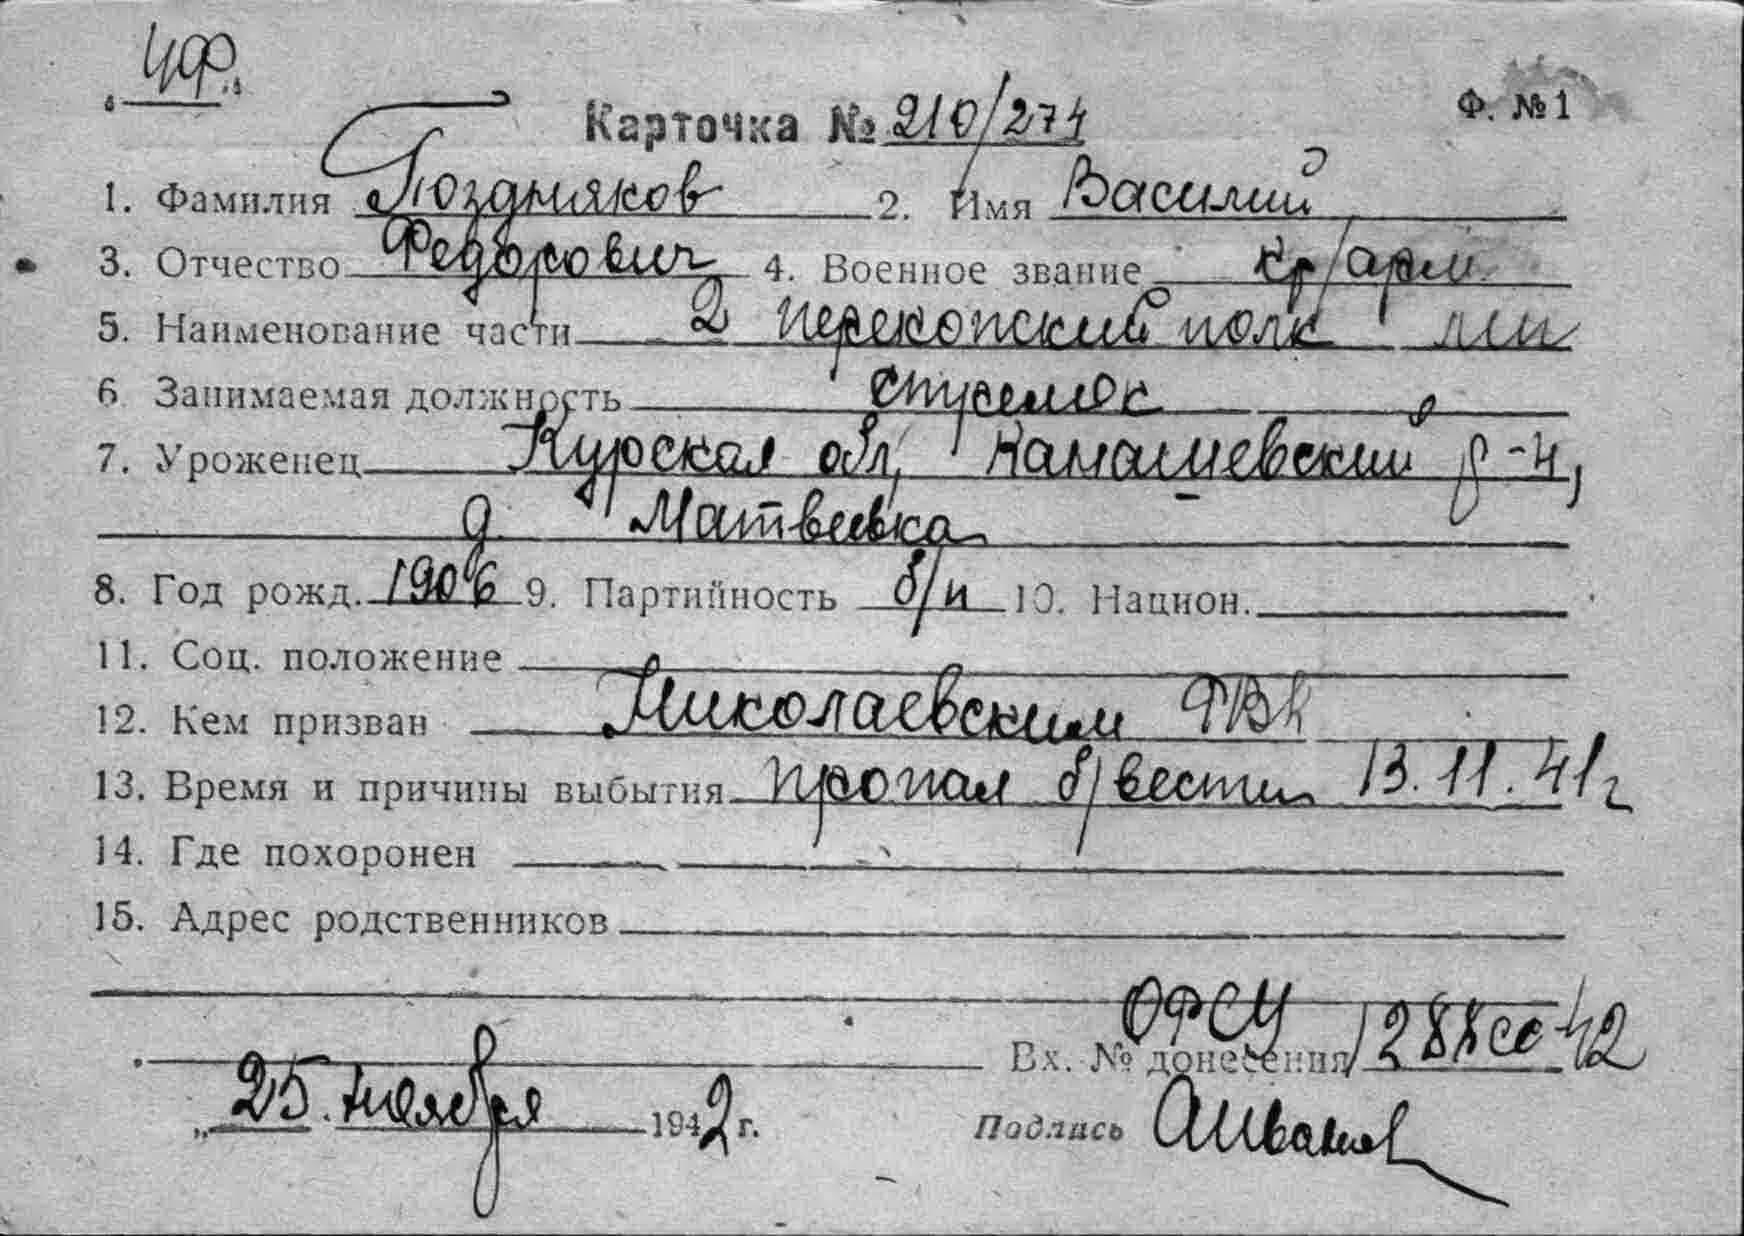 ЧФ.
Карточка № 210/274 Ф. №1
1. Фамилия Поздняков 2. Имя Василий
3. Отчество Федорович 4. Военное звание кр/арм.
5. Наименование части 2 перекопский полк мп
6 Занимаемая должность стрелок
7. Уроженец Курская обл, Канашевский р-н,
д. Матвеевка
8. Год рожд. 1906 9. Партийность б/п 10. Национ.
11. Соц. положение
12. Кем призван Николаевским РВК
13. Время и причины выбытия пропал б/вести 13.11.41г
14. Где похоронен
15. Адрес родственников
ОРСУ
Вх. № донесения 1288сс-42
„25. ноября 1942 г. Подпись